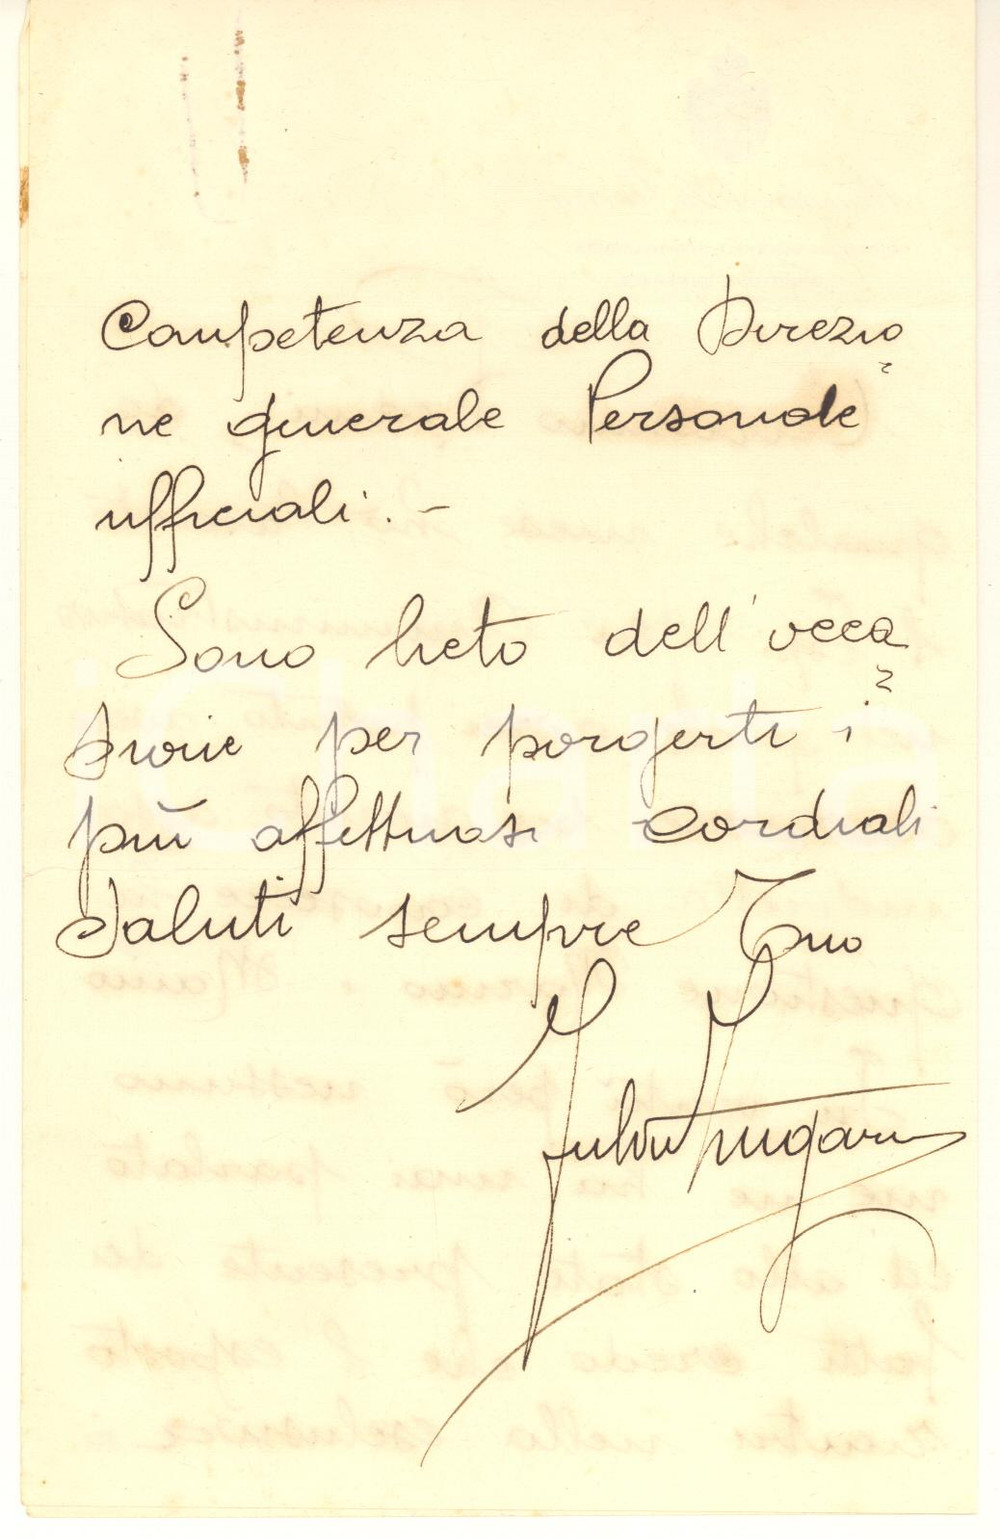 Competenza della Direzio=
ne generale Personale
ufficiali. -
Sono lieto dell'occa=
sione per porgerti i
più affettuosi cordiali
saluti sempre Tuo